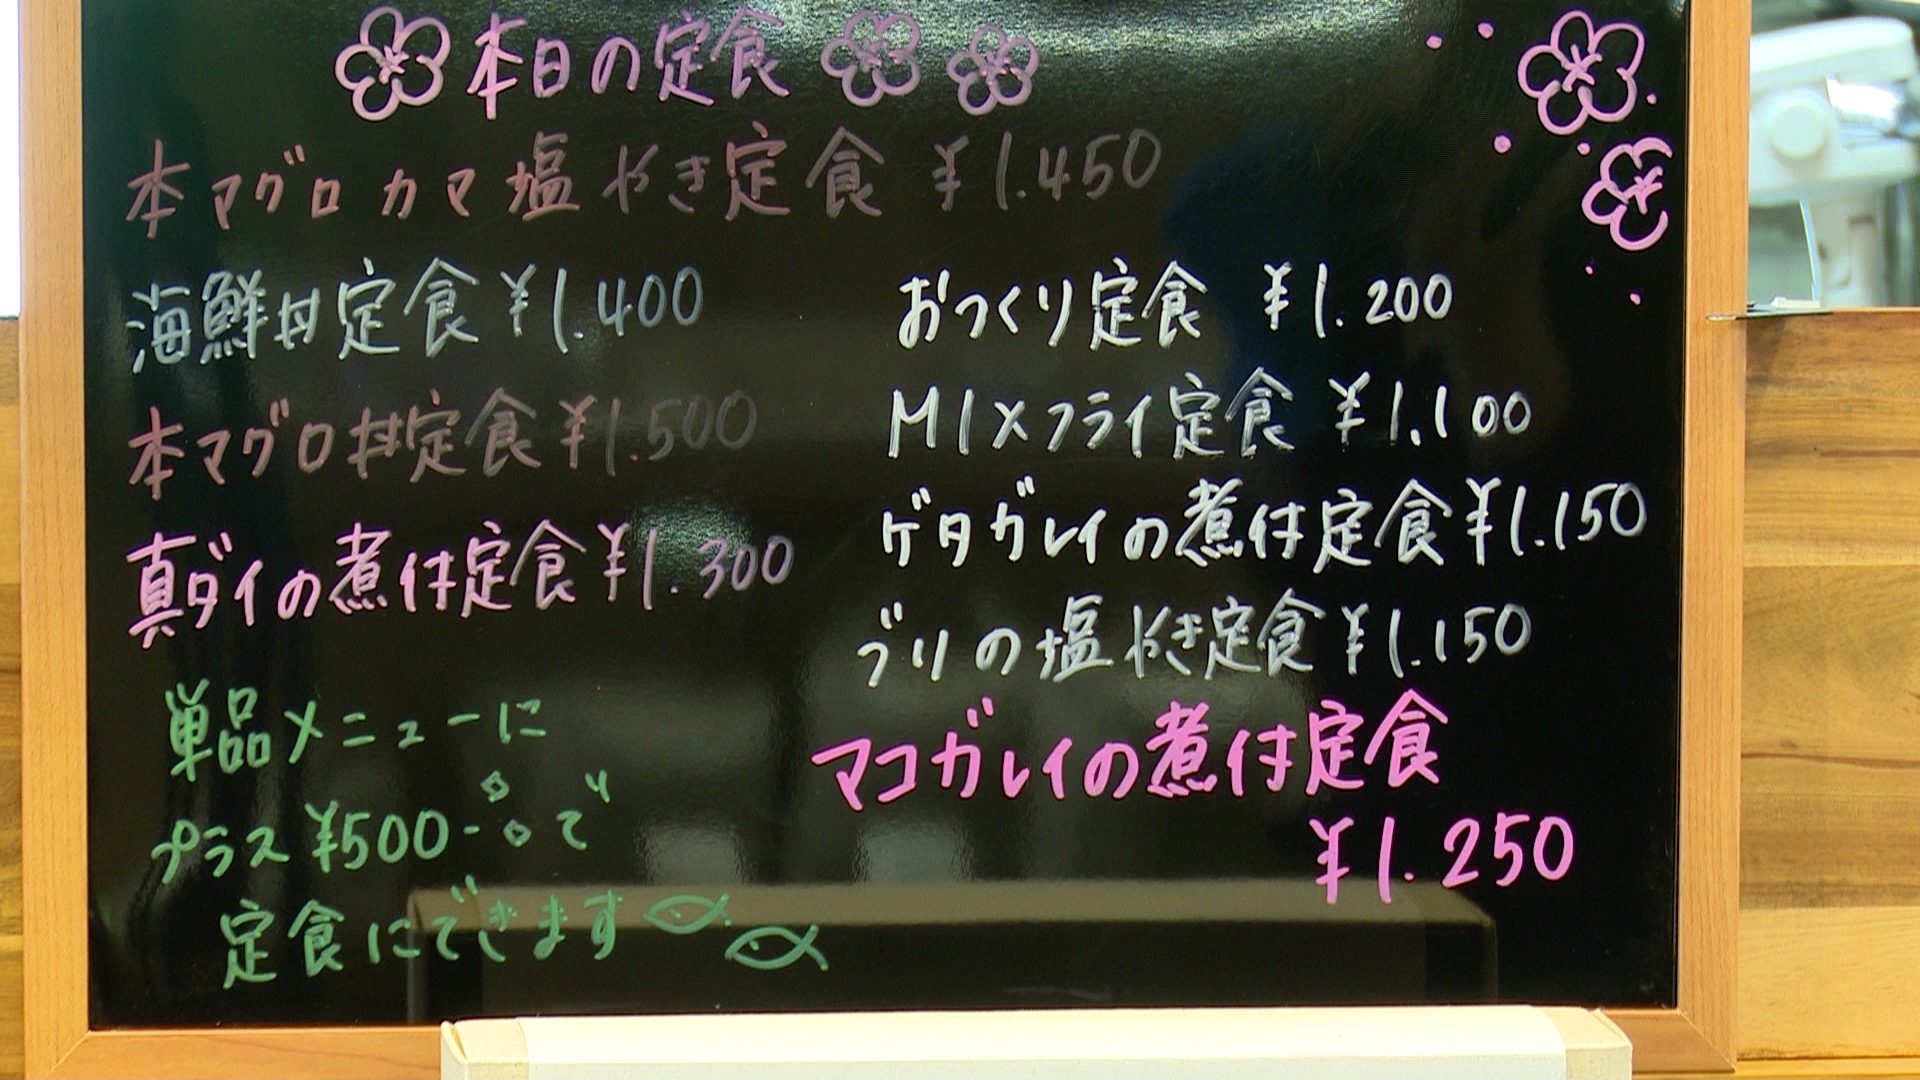 本日の定食
本マグロカマ塩やき定食 ¥1.450
海鮮丼定食 ¥1.400
本マグロ丼定食 ¥1.500
真ダイの煮付定食 ¥1.300
単品メニューに
プラス¥500-で
定食にできます
おつくり定食 ¥1.200
MIXフライ定食 ¥1.100
ゲタガレイの煮付定食 ¥1.150
ブリの塩やき定食 ¥1.150
マコガレイの煮付定食
¥1.250